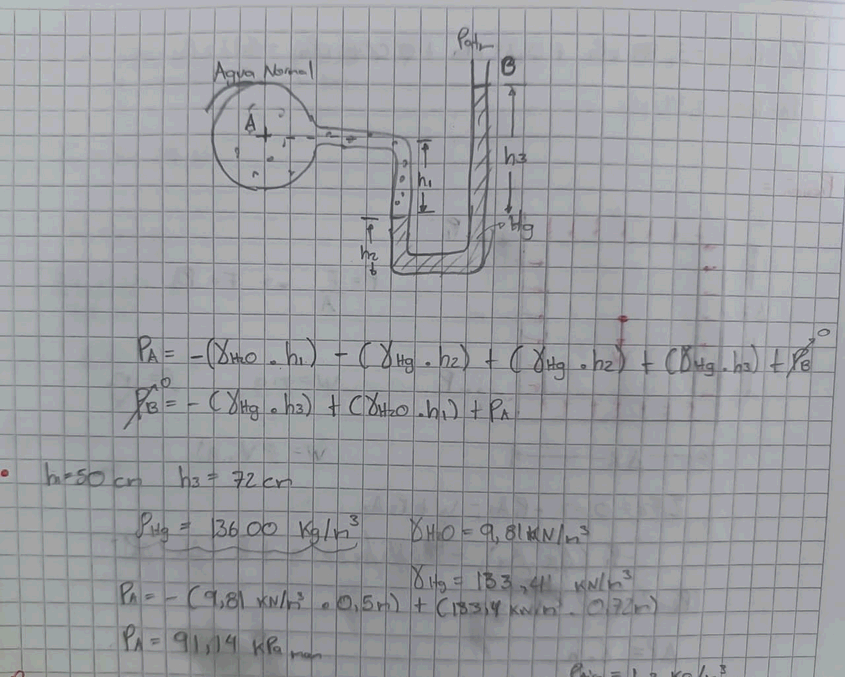 Patm
B
Agua Normal
A
h1
h3
h2
γHg
PA = -(γH2O . h1) - (γHg . h2) + (γHg . h2) + (γHg . h3) + PB 0
PB 0 = -(γHg . h3) + (γH2O . h1) + PA
h1=50 cm h3 = 72 cm
ρHg = 13600 Kg/m³ γH2O = 9,81 KN/m³
γHg = 133,41 KN/m³
PA = -(9,81 KN/m³ . 0,5m) + (133,4 KN/m³ . 0,72m)
PA = 91,14 KPa man